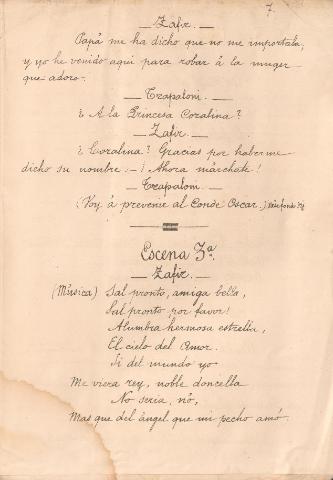 7.
Zafir.
Papá me ha dicho que no me importaba,
y yo he venido aquí para robar á la muger
que adoro.
Trapatoni.
¿ A la Princesa Coralina?
Zafir.
¿ Coralina? Gracias por haberme
dicho su nombre. ¡ Ahora márchate!
Trapatoni.
(Voy á prevenir al Conde Oscar.)
Escena 3ª.
Zafir.
(Música) Sal pronto, amiga bella,
Sal pronto por favor!
Alumbra hermosa estrella,
El cielo del Amor.
Si del mundo yo
Me viera rey, noble doncella
No seria, nó,
Mas que del ángel que mi pecho amó.